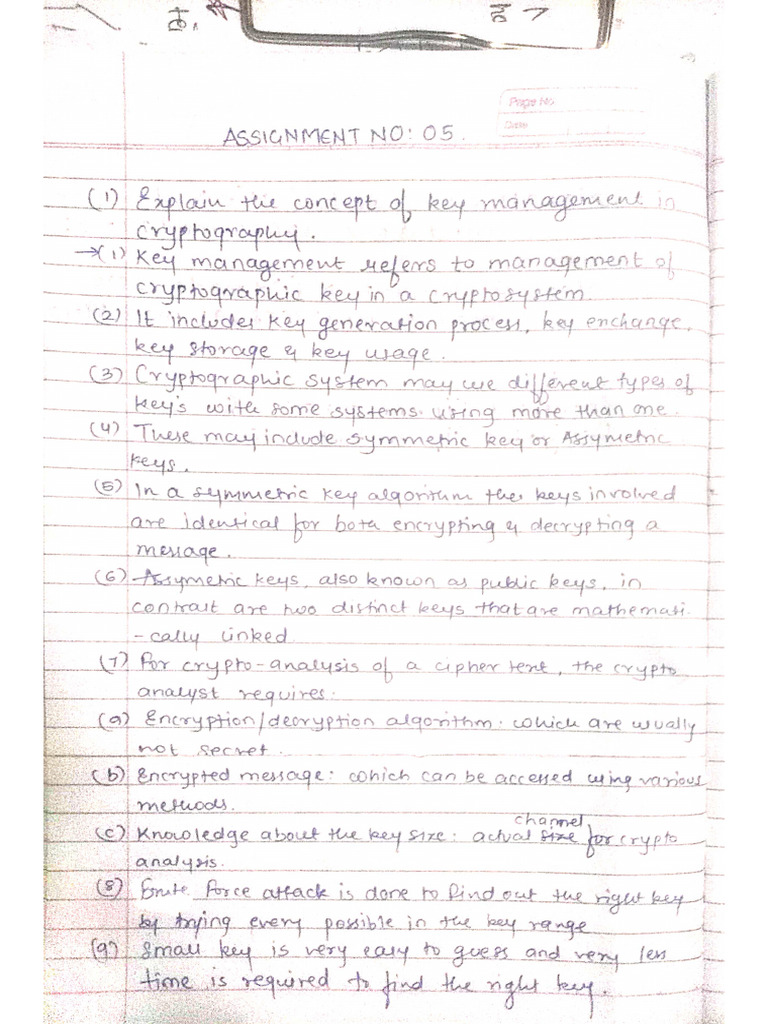 Page No.
Date
ASSIGNMENT NO: 05.
(1) Explain the concept of key management in
cryptography.
→(1) Key management refers to management of
cryptographic key in a cryptosystem.
(2) It includes key generation process, key enchange,
key storage & key usage.
(3) Cryptographic system may use different types of
key's with some systems using more than one.
(4) These may include symmetric key or Assymetric
keys.
(5) In a symmetric key algorithm the keys involved
are identical for both encrypting & decrypting a
message.
(6) Assymetric keys, also known as public keys, in
contrast are two distinct keys that are mathemati-
-cally linked.
(7) For crypto-analysis of a cipher tent, the crypto
analyst requires:
(a) Encryption/decryption algorithm: which are usually
not secret.
(b) Encrypted message: which can be accessed using various
methods.
channel
(c) Knowledge about the key size: actual size for crypto
analysis.
(8) Brute force attack is done to find out the right key
by trying every possible in the key range
(9) Small key is very easy to guess and very less
time is required to find the right key.